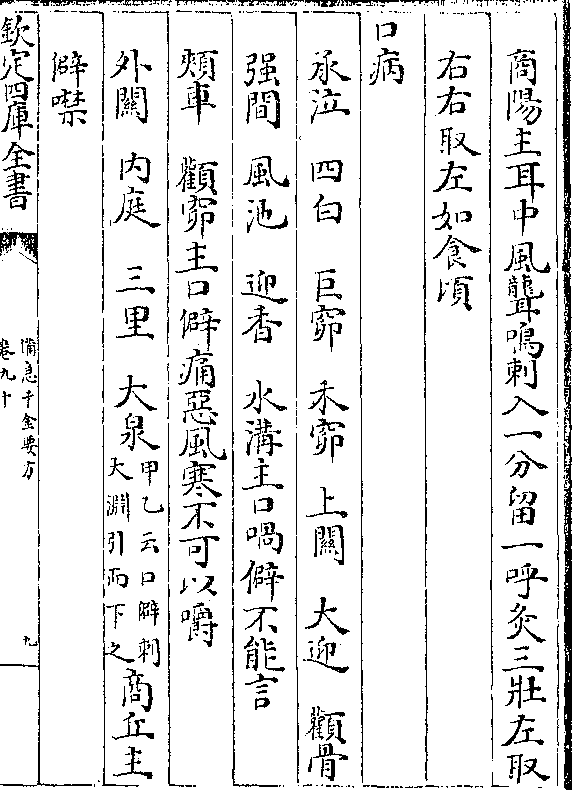 商陽主耳中風聾鳴刺入一分留一呼灸三壯左取
右右取左如食頃
口病
承泣 四白 巨窌 禾窌 上關 大迎 顴骨
强間 風池 迎香 水溝主口喎僻不能言
頰車 顴窌主口僻痛惡風寒不可以嚼
外關 內庭 三里 大泉甲乙云口僻刺大淵引而下之商丘主
僻噤
欽定四庫全書
備急千金要方
卷九十
九